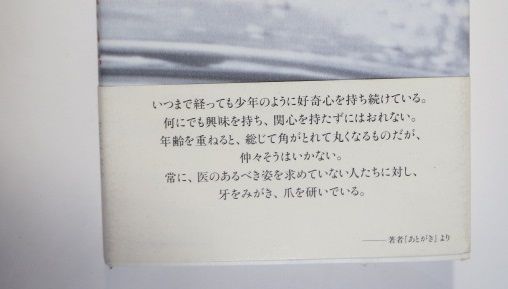 いつまで経っても少年のように好奇心を持ち続けている。
何にでも興味を持ち、関心を持たずにはおれない。
年齢を重ねると、総じて角がとれて丸くなるものだが、
仲々そうはいかない。
常に、医のあるべき姿を求めていない人たちに対し、
牙をみがき、爪を研いでいる。
——著者『あとがき』より